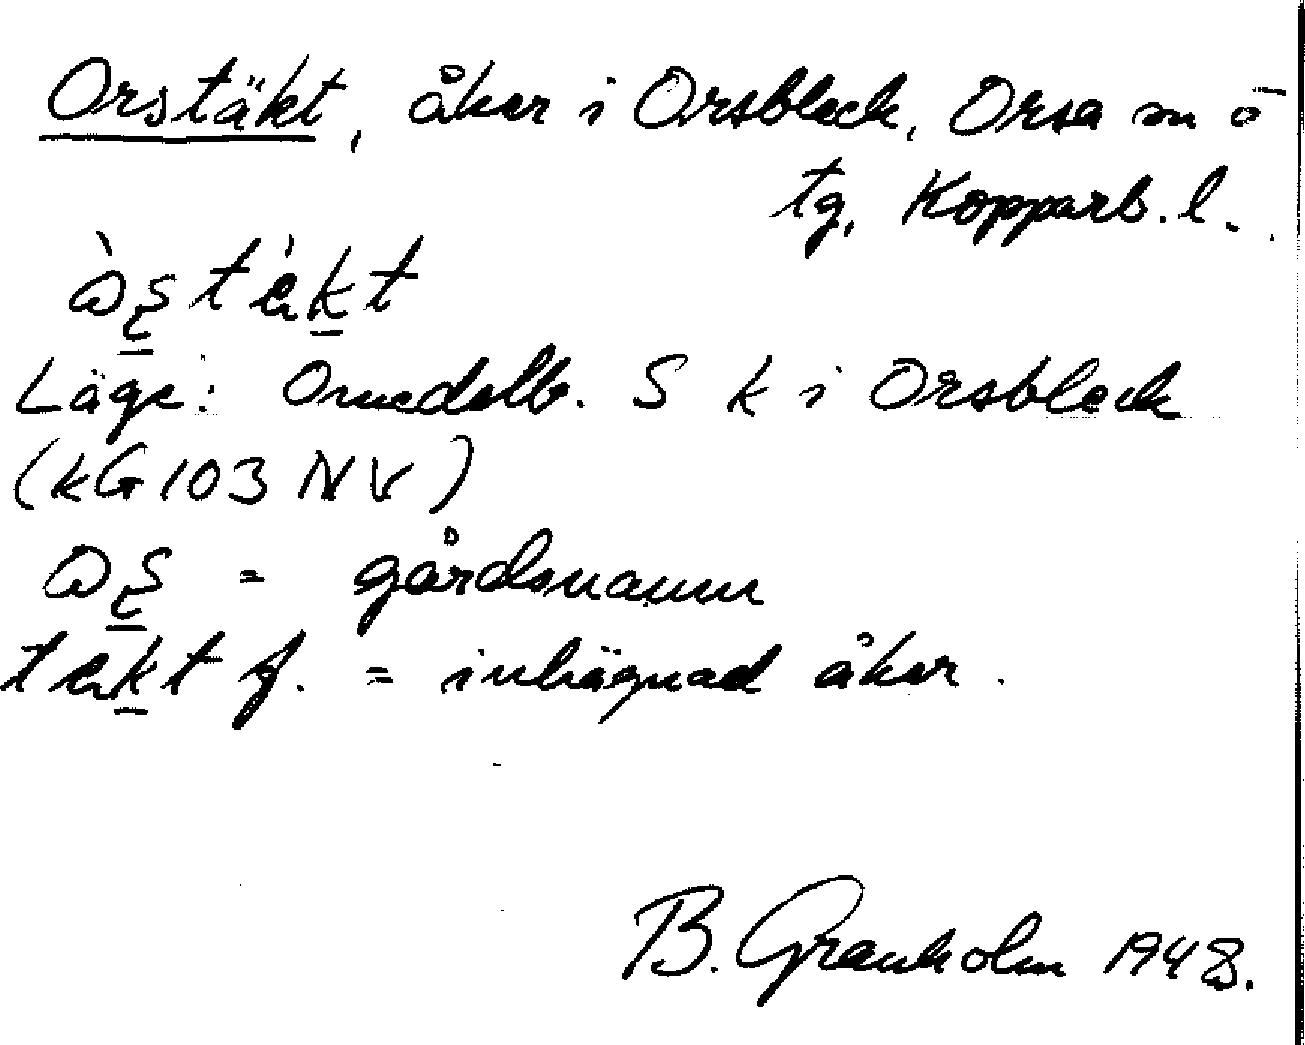 Orstäkt, åker i Orsbleck, Orsa sn o
tg, Kopparb. l.
Läge: Omedelb. S k i Orsbleck
(kG 103 NV)
= gårdsnamn
f. = inhägnad åker.
B. Granholm 1948.